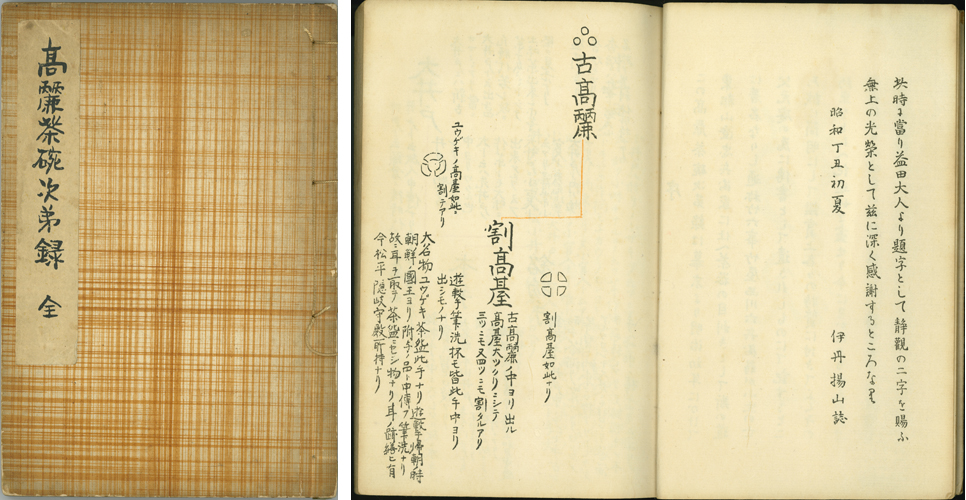 高麗茶碗次第録 全
此時に當り益田大人より題字として靜觀の二字を賜ふ
無上の光榮として茲に深く感謝するところなり
昭和丁丑初夏
伊丹揚山誌
古高麗
割高臺
割高臺如此ナリ
古高麗ノ中ヨリ出ル
高臺大ツクリニシテ
三ツニモ又四ツニモ割タルアリ
遊撃手筆洗抔モ皆此手中ヨリ
出シモノナリ
ユウゲキノ高臺如此ニ
割テアリ
大名物ユウゲキ茶盌此手ナリ遊撃手帰朝時
朝鮮ノ國王ヨリ附与ノ品ト申傳フ筆洗ナリ
故ニ耳ヲ取テ茶盌ニセシ物ナリ耳ノ跡繕ヒ有
今松平隠岐守殿所持ナリ